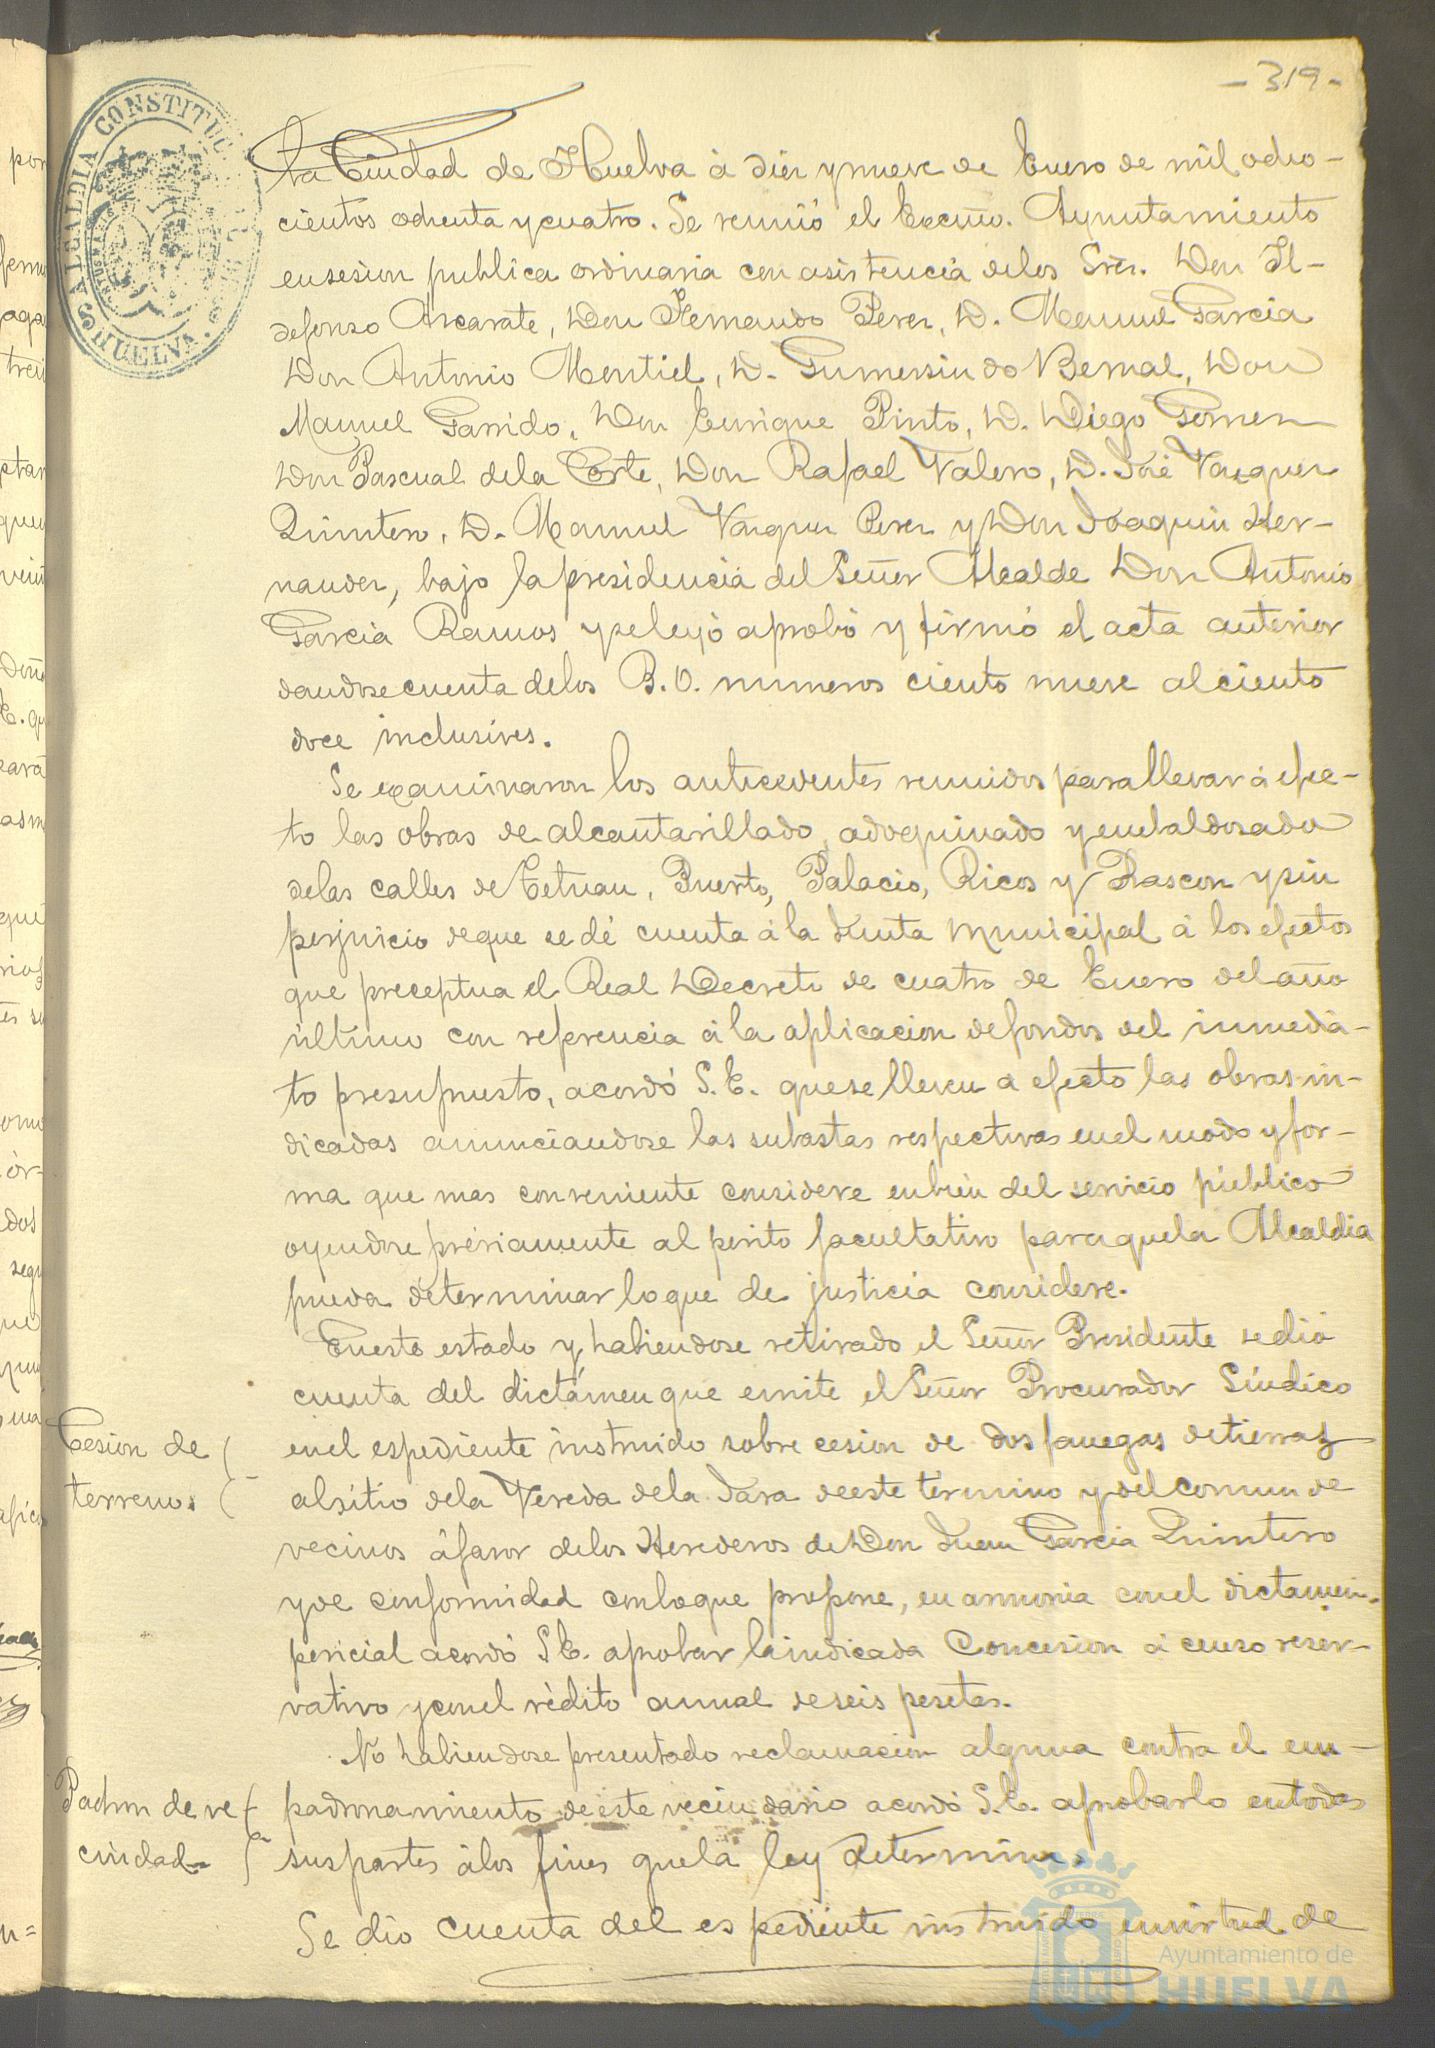 -319-
ALCALDIA CONSTITUC
HUELVA.
la Ciudad de Huelva á diez y nueve de Enero de mil ocho-
cientos ochenta y cuatro. Se reunió el Excmo. Ayuntamiento
en sesion publica ordinaria con asistencia de los Sres. Don Il-
defonso Ascarate, Don Fernando Perez, D. Manuel Garcia
Don Antonio Montiel, D. Gumersindo Bernal, Don
Manuel Garrido, Don Enrique Pinto, D. Diego Gomez
Don Pascual de la Corte, Don Rafael Valero, D. José Vazquez
Quintero, D. Manuel Vazquez Perez y Don Joaquin Her-
nandez, bajo la presidencia del Señor Alcalde Don Antonio
Garcia Ramos y se leyó aprobó y firmó el acta anterior
dandose cuenta de los B.O. numeros ciento nueve al ciento
doce inclusives.
Se examinaron los antecedentes reunidos para llevar á efec-
to las obras de alcantarillado, adoquinado y enbaldosado
de las calles de Tetuan, Puerto, Palacio, Ricos y Rascon y sin
perjuicio de que se dé cuenta á la Junta Municipal á los efectos
que preceptua el Real Decreto de cuatro de Enero del año
último con referencia á la aplicacion de fondos del inmedia-
to presupuesto, acordó S.E. que se lleven a efecto las obras in-
dicadas anunciandose las subastas respectivas en el modo y for-
ma que mas conveniente considere en bien del servicio público
oyendose préviamente al perito facultativo para que la Alcaldia
pueda determinar lo que de justicia considere.
En este estado y habiendose retirado el Señor Presidente se dió
cuenta del dictámen que emite el Señor Procurador Síndico
Cesion de
terrenos
en el espediente instruido sobre cesion de dos fanegas de tierras
al sitio de la Vereda de la Jara de este termino y del comun de
vecinos á favor de los Herederos de Don Juan Garcia Quintero
y de conformidad con lo que propone, en armonia con el dictamen
pericial acordó S.E. aprobar la indicada Concesion á censo reser-
vativo y con el rédito anual de seis pesetas.
No habiendose presentado reclamacion alguna contra el em-
Padron de ve
cindad
padronamiento de este vecindario acordó S.E. aprobarlo en todas
sus partes á los fines que la ley determina.
Se dió cuenta del espediente instruido en virtud de
Ayuntamiento de
HUELVA